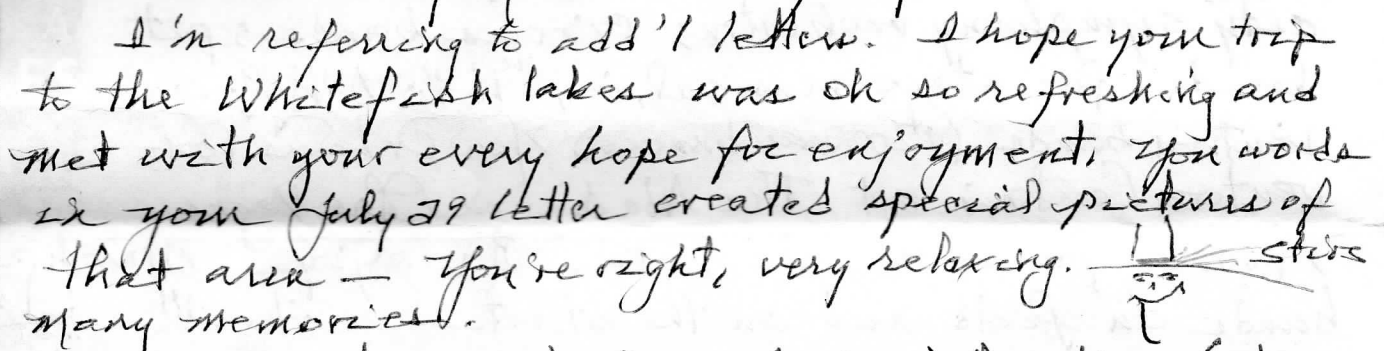 I'm referring to add'l letters. I hope your trip
to the Whitefish lakes was oh so refreshing and
met with your every hope for enjoyment. You words
in your July 29 letter created special pictures of
that area — You're right, very relaxing. stirs
many memories.